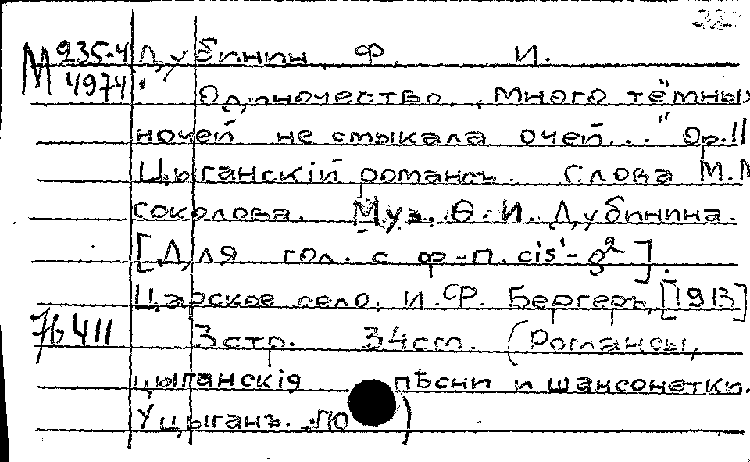 М 235-4 Дубинин, Ф. И.
4974 "Одиночество. „Много тёмных
ночей не смыкала очей..." Op. 11
Цыганскій романсъ. Слова М.М.
Соколова. Муз. Ѳ. И. Дубинина.
[Для гол. с ф-п. cis¹-g²].
Царское село, И.Ф. Бергеръ, [1913]
76411 3 стр. 34 см. (Романсы,
цыганскія пѣсни и шансонетки.
У цыганъ. )